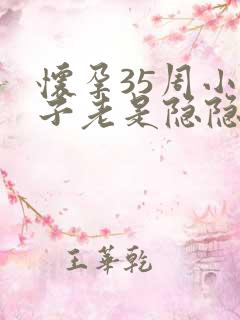 懷孕35周小
子老是隐隐
王華乾